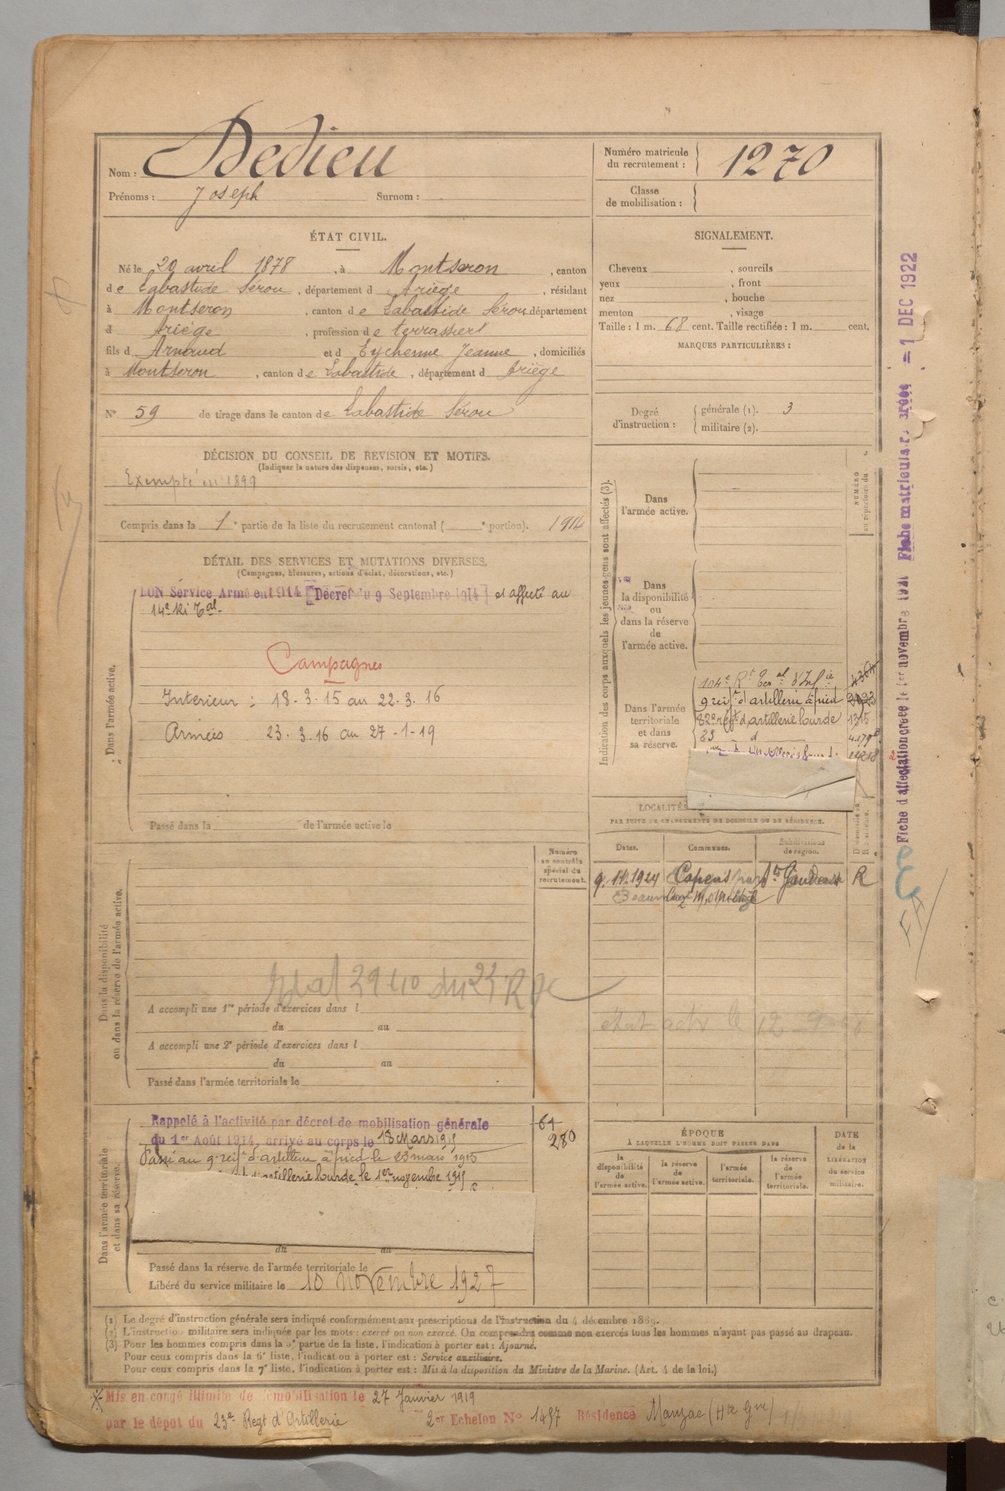 Nom : Dedieu
Prénoms : Joseph Surnom :
Numéro matricule du recrutement : 1270
Classe de mobilisation :
ÉTAT CIVIL.
Né le 20 avril 1878, à Montseron, canton
de Labastide Sérou, département d Ariège, résidant
à Montseron, canton de Labastide Sérou département
d Ariège, profession de terrassier
fils d Arnaud et d Eychenne Jeanne, domiciliés
à Montseron, canton de Labastide, département d Ariège
N° 59 de tirage dans le canton de Labastide Sérou
SIGNALEMENT.
Cheveux , sourcils
yeux , front
nez , bouche
menton , visage
Taille : 1 m. 68 cent. Taille rectifiée : 1 m. cent.
MARQUES PARTICULIÈRES :
Degré d'instruction : générale (1). 3
militaire (2).
DÉCISION DU CONSEIL DE REVISION ET MOTIFS.
(Indiquer la nature des dispenses, sursis, etc.)
Exempté en 1899
Compris dans la 1e partie de la liste du recrutement cantonal ( e portion). 1914
DÉTAIL DES SERVICES ET MUTATIONS DIVERSES.
(Campagnes, blessures, actions d'éclat, décorations, etc.)
BON Service Armé en 1914 [Décret du 9 Septembre 1914] et affecté au
14e Ri Tal.
Campagnes
Intérieur : 18.3.15 au 22.3.16
Armées 23.3.16 au 27-1-19
Dans l'armée active.
Passé dans la de l'armée active le
Indication des corps auxquels les jeunes gens sont affectés (3).
Dans l'armée active.
Dans la disponibilité ou dans la réserve de l'armée active.
Dans l'armée territoriale et dans sa réserve.
9 reg't d'artillerie à pied
d'artillerie lourde 1315
83 d
14218
NUMÉRO au répertoire du
LOCALITÉS
PAR SUITE DE CHANGEMENTS DE DOMICILE OU DE RÉSIDENCE.
Dates. Communes. Subdivisions de région.
9.11.1924 Capens St Gaudens R
Numéro au contrôle spécial du recrutement.
Dans la disponibilité ou dans la réserve de l'armée active.
A accompli une 1re période d'exercices dans l
du au
A accompli une 2e période d'exercices dans l
du au
Passé dans l'armée territoriale le
Dans l'armée territoriale et dans sa réserve.
Rappelé à l'activité par décret de mobilisation générale
du 1er Août 1914, arrivé au corps le 18 Mars 1915
Passé au 9e regt d'artillerie à pied le 23 mars 1915
d'artillerie lourde le 1er novembre 1915
64
280
du au
Passé dans la réserve de l'armée territoriale le
Libéré du service militaire le 10 novembre 1927
ÉPOQUE
À LAQUELLE L'HOMME DOIT PASSER DANS
la disponibilité de l'armée active.
la réserve de l'armée active.
l'armée territoriale.
la réserve de l'armée territoriale.
DATE de la LIBÉRATION du service militaire.
(1) Le degré d'instruction générale sera indiqué conformément aux prescriptions de l'instruction du 4 décembre 1889.
(2) L'instruction militaire sera indiquée par les mots : exercé ou non exercé. On comprendra comme non exercés tous les hommes n'ayant pas passé au drapeau.
(3) Pour les hommes compris dans la 5e partie de la liste, l'indication à porter est : Ajourné.
Pour ceux compris dans la 6e liste, l'indication à porter est : Service auxiliaire.
Pour ceux compris dans la 7e liste, l'indication à porter est : Mis à la disposition du Ministre de la Marine. (Art. 4 de la loi.)
Mis en congé illimité de démobilisation le 27 Janvier 1919
par le dépôt du 23e Regt d'Artillerie 2er Echelon N° 1497 Résidence Mauzac (Hte Gne)
Fiche d'affectation créée le 1er novembre 1921 Fiche matricule créée = 1 DEC 1922